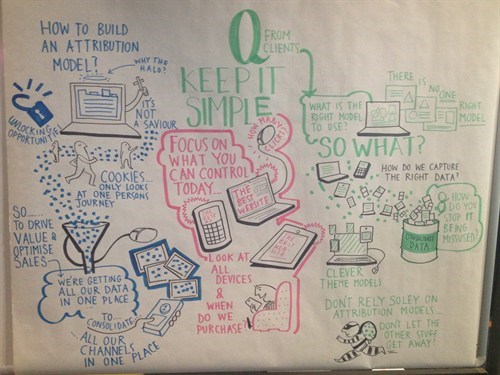 HOW TO BUILD
AN ATTRIBUTION
MODEL?
WHY THE
HALO?
IT'S
NOT
A SAVIOUR
UNLOCKING
OPPORTUNITY
COOKIES...
ONLY LOOKS
AT ONE PERSONS
JOURNEY
SO......
TO DRIVE
VALUE &
OPTIMISE
SALES...
WE'RE GETTING
ALL OUR DATA
IN ONE PLACE
TO...
CONSOLIDATE
ALL OUR
CHANNELS
IN ONE PLACE
Q FROM
CLIENTS
KEEP IT
SIMPLE
HOW MANY
CLICKS?
FOCUS ON
WHAT YOU
CAN CONTROL
TODAY...
THE
BEST
WEBSITE
LOOK AT
ALL
DEVICES
&
WHEN
DO WE
PURCHASE?
WHAT IS THE
RIGHT MODEL
TO USE?
THERE
IS NO ONE
RIGHT
MODEL
SO WHAT?
HOW DO WE CAPTURE
THE RIGHT DATA?
Q HOW
DO YOU
STOP IT
BEING
MISSUSED?
CONSOLIDATE
DATA
CLEVER
THEME MODEL!
DON'T RELY SOLEY ON
ATTRIBUTION MODELS...
DON'T LET THE
OTHER STUFF
GET AWAY!